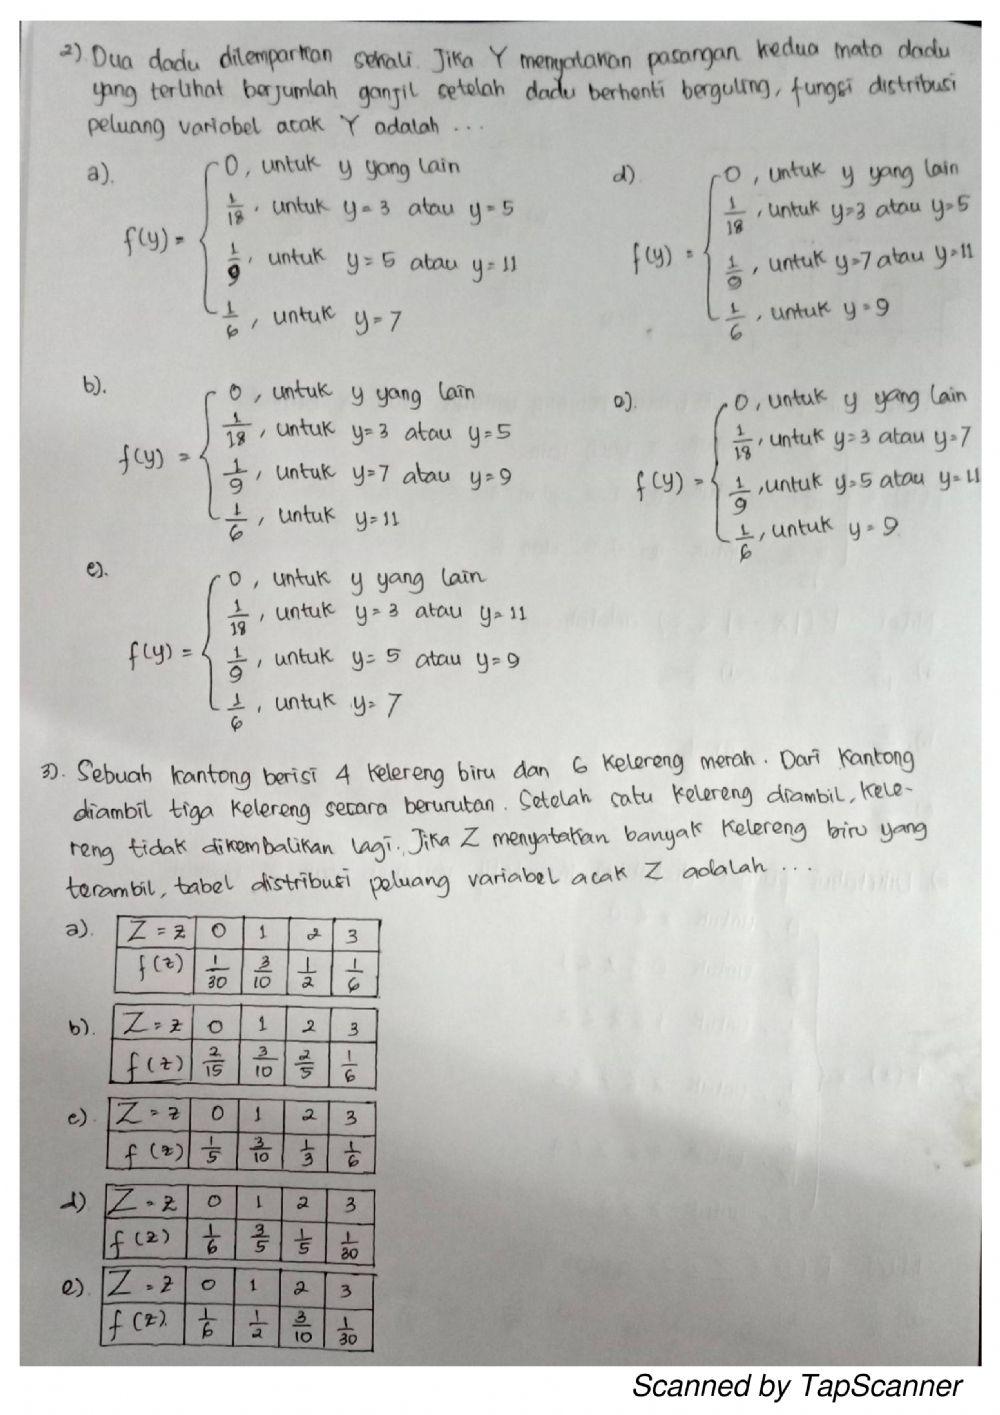 2) Dua dadu dilemparkan sekali. Jika Y menyatakan pasangan kedua mata dadu
yang terlihat berjumlah ganjil setelah dadu berhenti berguling, fungsi distribusi
peluang variabel acak Y adalah ...
a). f(y) = { 0, untuk y yang lain
1/18, untuk y = 3 atau y = 5
1/9, untuk y = 5 atau y = 11
1/6, untuk y = 7
d). f(y) = { 0, untuk y yang lain
1/18, untuk y=3 atau y=5
1/9, untuk y=7 atau y=11
1/6, untuk y=9
b). f(y) = { 0, untuk y yang lain
1/18, untuk y=3 atau y=5
1/9, untuk y=7 atau y=9
1/6, untuk y=11
e). f(y) = { 0, untuk y yang lain
1/18, untuk y=3 atau y=7
1/9, untuk y=5 atau y=11
1/6, untuk y=9
c). f(y) = { 0, untuk y yang lain
1/18, untuk y=3 atau y=11
1/9, untuk y=5 atau y=9
1/6, untuk y=7
3). Sebuah kantong berisi 4 kelereng biru dan 6 kelereng merah. Dari kantong
diambil tiga kelereng secara berurutan. Setelah satu kelereng diambil, kele-
reng tidak dikembalikan lagi. Jika Z menyatakan banyak kelereng biru yang
terambil, tabel distribusi peluang variabel acak Z adalah ...
a). Z = z 0 1 2 3
f(z) 1/30 3/10 1/2 1/6
b). Z = z 0 1 2 3
f(z) 2/15 3/10 2/5 1/6
c). Z = z 0 1 2 3
f(z) 1/5 3/10 1/3 1/6
d) Z = z 0 1 2 3
f(z) 1/6 3/5 1/5 1/30
e). Z = z 0 1 2 3
f(z). 1/6 1/2 3/10 1/30
Scanned by TapScanner